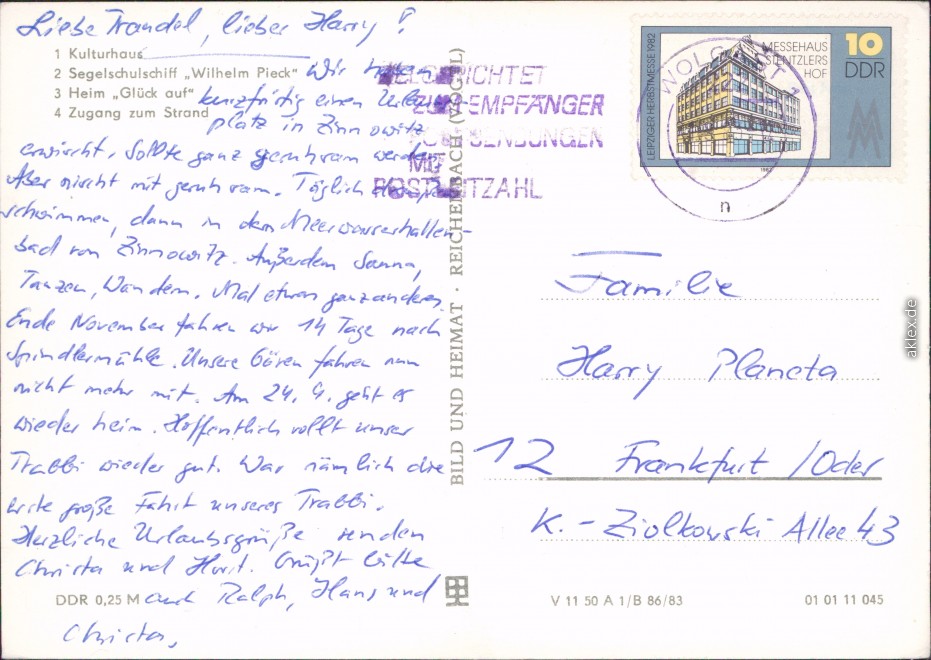 Liebe Traudel, lieber Harry!
1 Kulturhaus
2 Segelschulschiff „Wilhelm Pieck“ Wir haben
3 Heim „Glück auf“ kurzfristig einen Urlaubs-
4 Zugang zum Strand platz in Zinnowitz
erwischt. Sollte ganz geruhsam werden.
Aber nischt mit geruhsam. Täglich
schwimmen, dann in dem Meerwasserhallen-
bad von Zinnowitz. Außerdem Sauna,
Tanzen, Wandern. Mal etwas ganz anderes.
Ende November fahren wir 14 Tage nach
Spindlermühle. Unsere Gören fahren nun
nicht mehr mit. Am 24. 4. geht es
wieder heim. Hoffentlich rollt unser
Trabbi wieder gut. War nämlich die
erste große Fahrt unseres Trabbi.
Herzliche Urlaubsgrüße senden
Christa und Horst. Grüßt bitte
auch Ralph, Hans und
Christa.
DDR 0,25 M
BILD UND HEIMAT · REICHENBACH (VOGTL)
GERICHTET
EMPFÄNGER
SENDUNGEN
MIT
POSTLEITZAHL
WOLGAST 1
n
LEIPZIGER HERBSTMESSE 1982
MESSEHAUS
STENTZLERS
HOF
10
DDR
MM
1982
Familie
Harry Planeta
12 Frankfurt/Oder
K.-Ziolkowski Allee 43
V 11 50 A 1/B 86/83
01 01 11 045
aklex.de